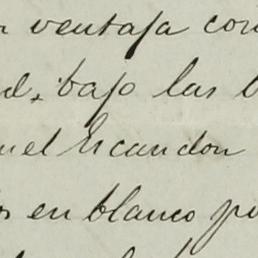 ventaja con
d, bajo las b
uel Escandon
os en blanco po